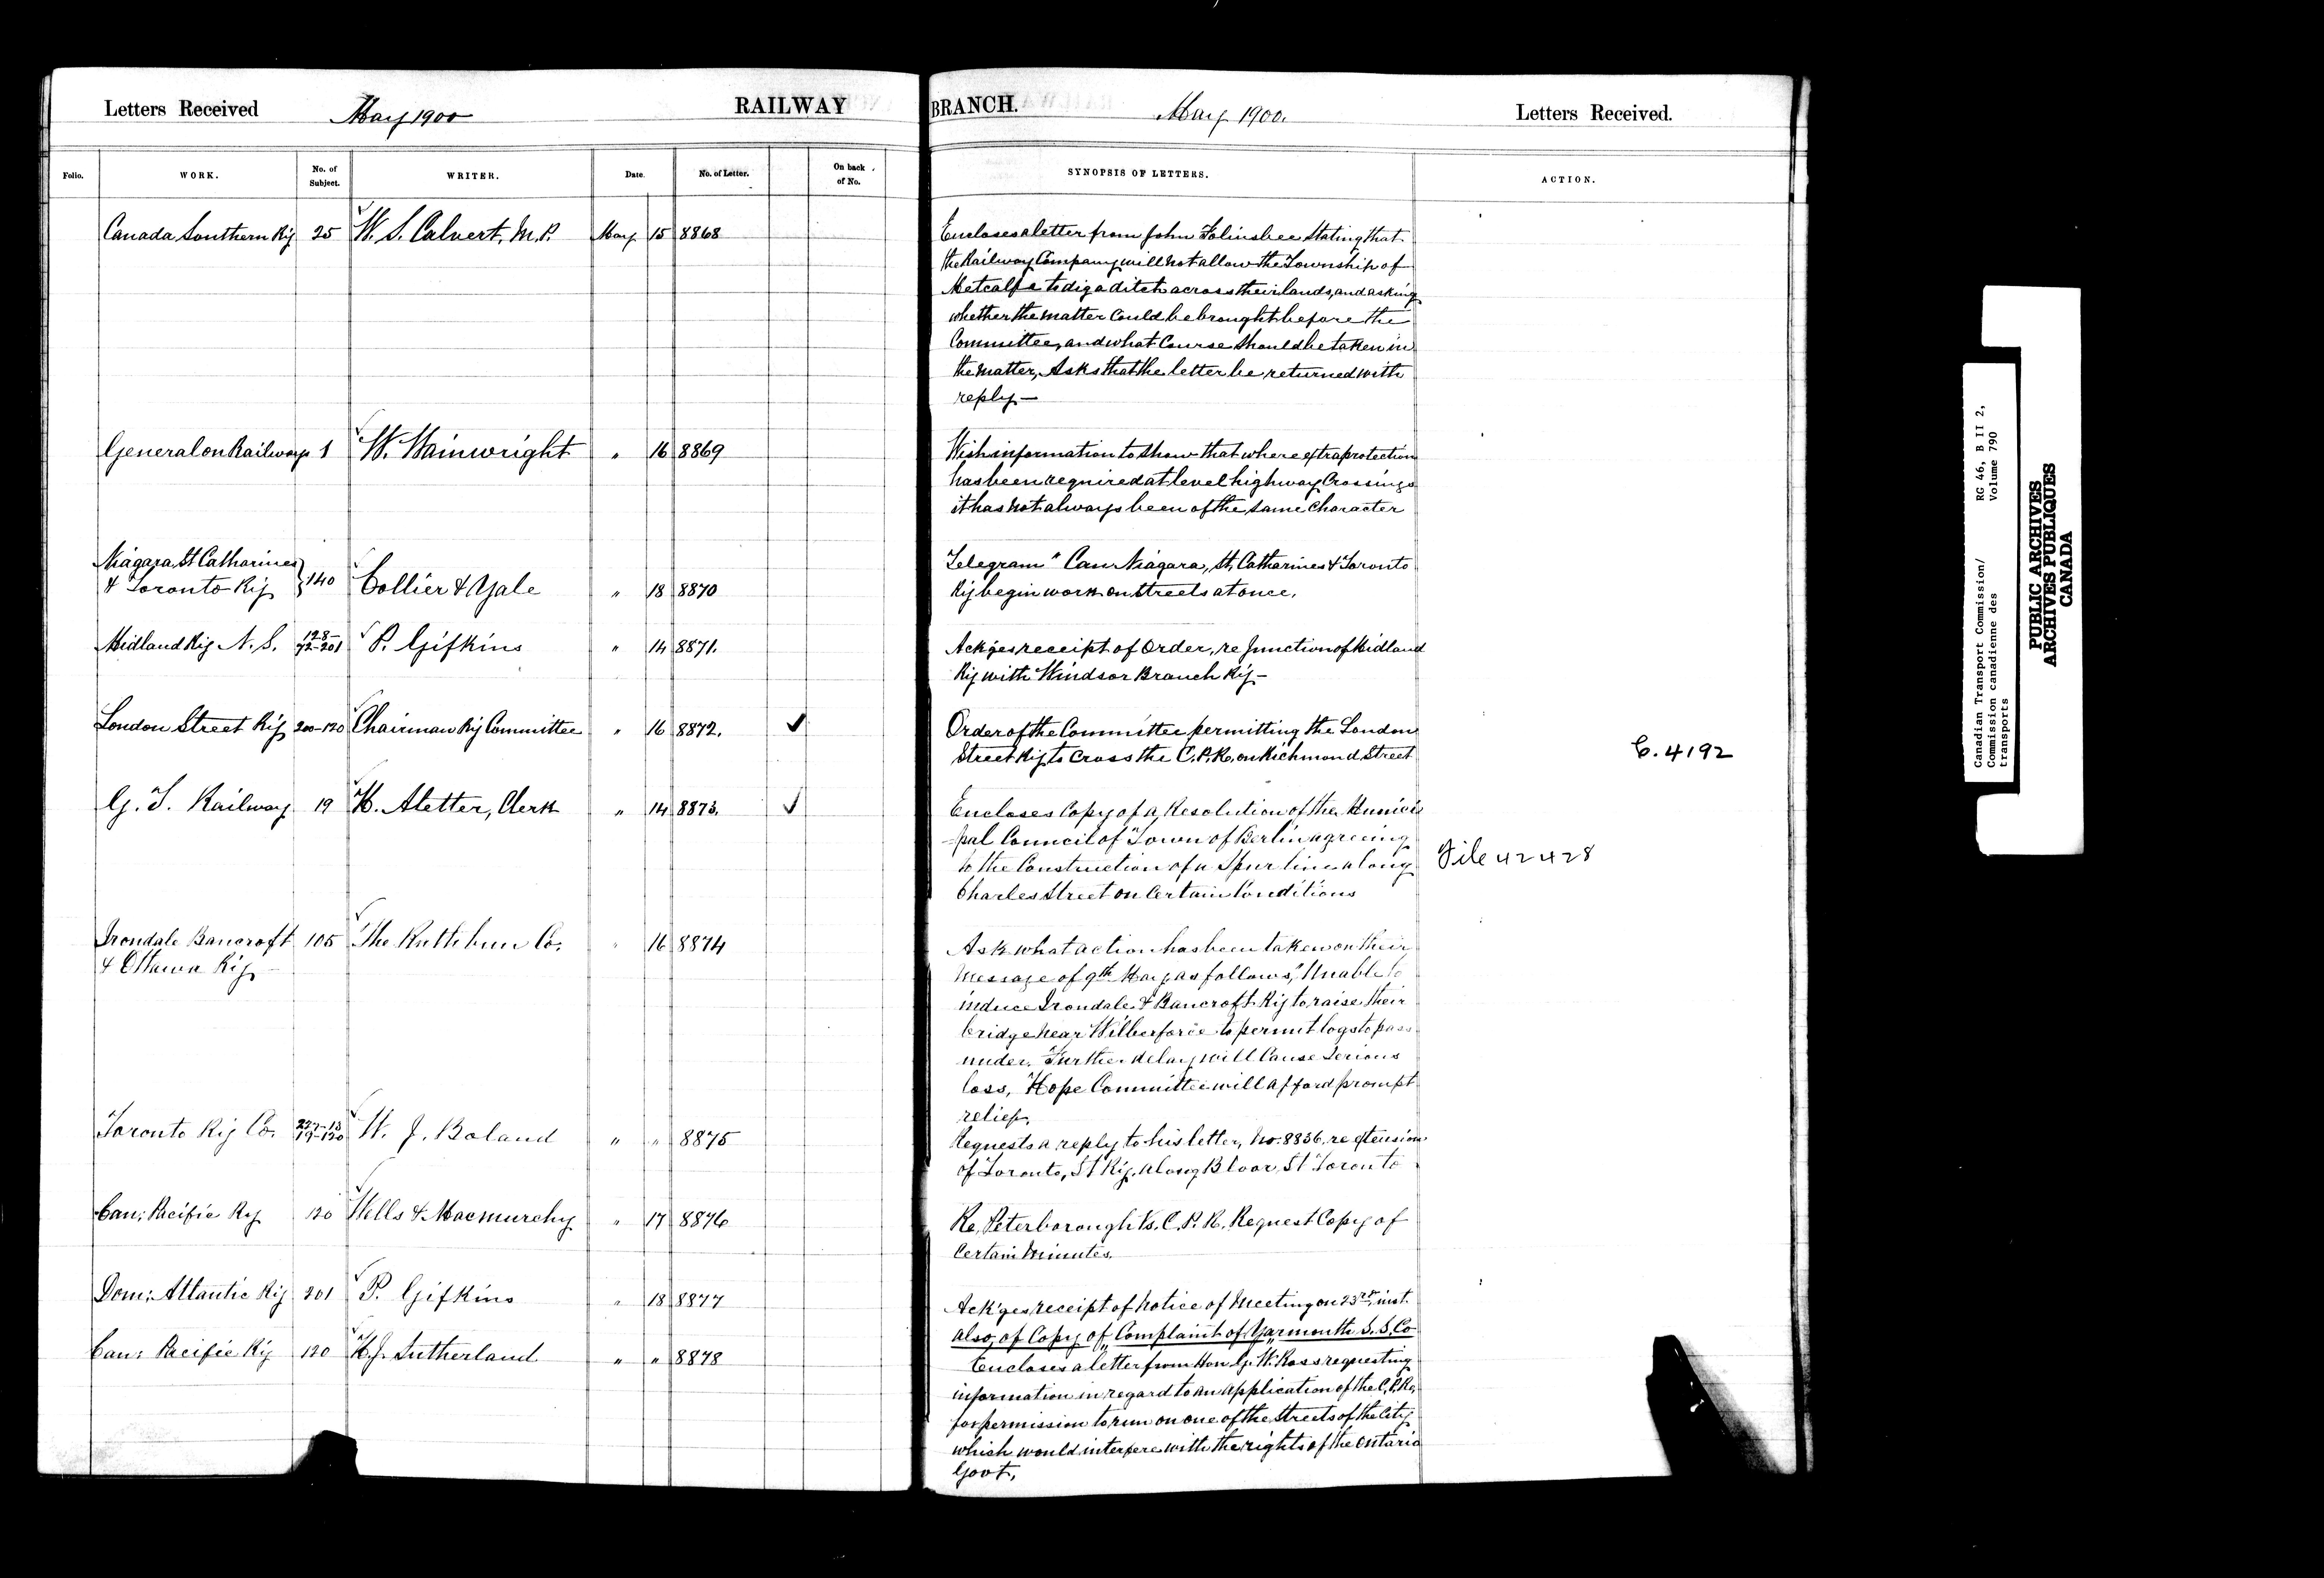 Letters Received May 1900 RAILWAY BRANCH. May 1900. Letters Received.
Folio. WORK. No. of Subject. WRITER. Date. No. of Letter. On back of No. SYNOPSIS OF LETTERS. ACTION.
Canada Southern Ry 25 W. S. Calvert, M.P. May 15 8868
Encloses a letter from John Folinsbee stating that
the Railway Company will not allow the Township of
Metcalfe to dig a ditch across their lands, and asking
whether the matter could be brought before the
Committee, and what Course should be taken in
the matter, Asks that the letter be returned with
reply —
General on Railways 1 W. Wainwright " 16 8869
Wish information to show that where extra protection
has been required at level highway Crossings
it has not always been of the same Character
Niagara St Catharines
& Toronto Ry } 140 Collier & Yale " 18 8870
Telegram " Can Niagara, St, Catherines & Toronto
Ry begin work on streets at once.
Midland Ry N. S. 128- 72-201 P. Gifkins " 14 8871.
Ack'ges receipt of Order, re Junction of Midland
Ry with Windsor Branch Ry —
London Street Ry 200-120 Chairman Ry Committee " 16 8872. ✓
Order of the Committee permitting the London
Street Ry to Cross the C.P.R. on Richmond Street
C. 4192
G. T. Railway 19 H. Aletter, Clerk " 14 8873. ✓
Encloses Copy of a Resolution of the Munici
-pal Council of Town of Berlin agreeing
to the Construction of a Spur line along
File 42428
Charles Street on Certain Conditions
Irondale Bancroft 105 The Rathbun Co. " 16 8874
& Ottawa Ry
Ask what action has been taken on their
message of 9th May, as follows, "Unable to
induce Irondale & Bancroft Ry to raise their
bridge near Wilberforce to permit logs to pass
under. Further delay will Cause Serious
loss, Hope Committee will afford prompt
relief.
Toronto Ry Co. 227-18 19-120 W. J. Boland " " 8875
Requests a reply to his letter, No. 8836, re extension
of Toronto, St Ry. along Bloor, St Toronto
Can: Pacific Ry 120 Wells & Macmurchy " 17 8876
Re, Peterborough Vs. C. P. R. Request Copy of
Certain Minutes.
Dom: Atlantic Ry 201 P. Gifkins " 18 8877
Ack'ges receipt of notice of Meeting on 23rd, inst
also, of Copy of Complaint of Yarmouth S. S. Co
Can: Pacific Ry 120 H. J. Sutherland " " 8878
Encloses a letter from Hon G. W. Ross requesting
information in regard to an application of the C.P.R.
for permission to run on one of the streets of the City
which would interfere with the rights of the Ontario
Govt.
Canadian Transport Commission/ RG 46, B II 2,
Commission canadienne des Volume 790
transports
PUBLIC ARCHIVES
ARCHIVES PUBLIQUES
CANADA